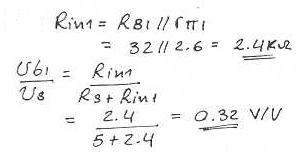 Rin1 = RB1 // rπ1
= 32 // 2.6 = 2.4 KΩ
Ub1 / Us = Rin1 / (Rs + Rin1)
= 2.4 / (5 + 2.4) = 0.32 V/V